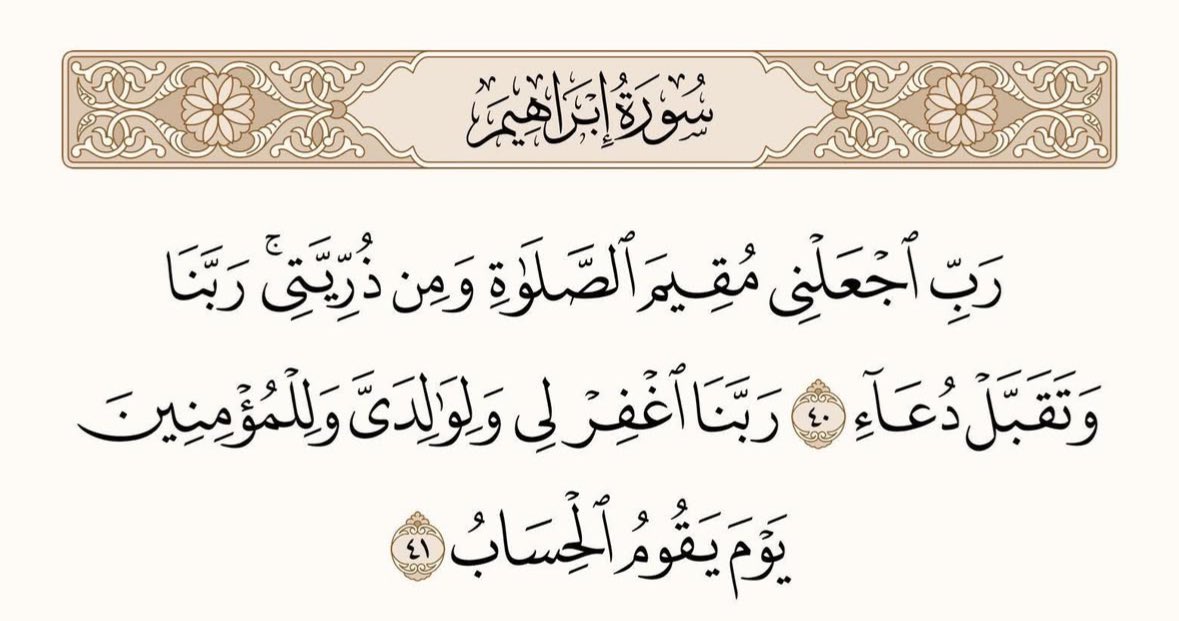 سُورَةُ إِبْرَاهِيمَ
رَبِّ ٱجْعَلْنِى مُقِيمَ ٱلصَّلَوٰةِ وَمِن ذُرِّيَّتِى ۚ رَبَّنَا
وَتَقَبَّلْ دُعَآءِ ٤٠ رَبَّنَا ٱغْفِرْ لِى وَلِوَٰلِدَىَّ وَلِلْمُؤْمِنِينَ
يَوْمَ يَقُومُ ٱلْحِسَابُ ٤١